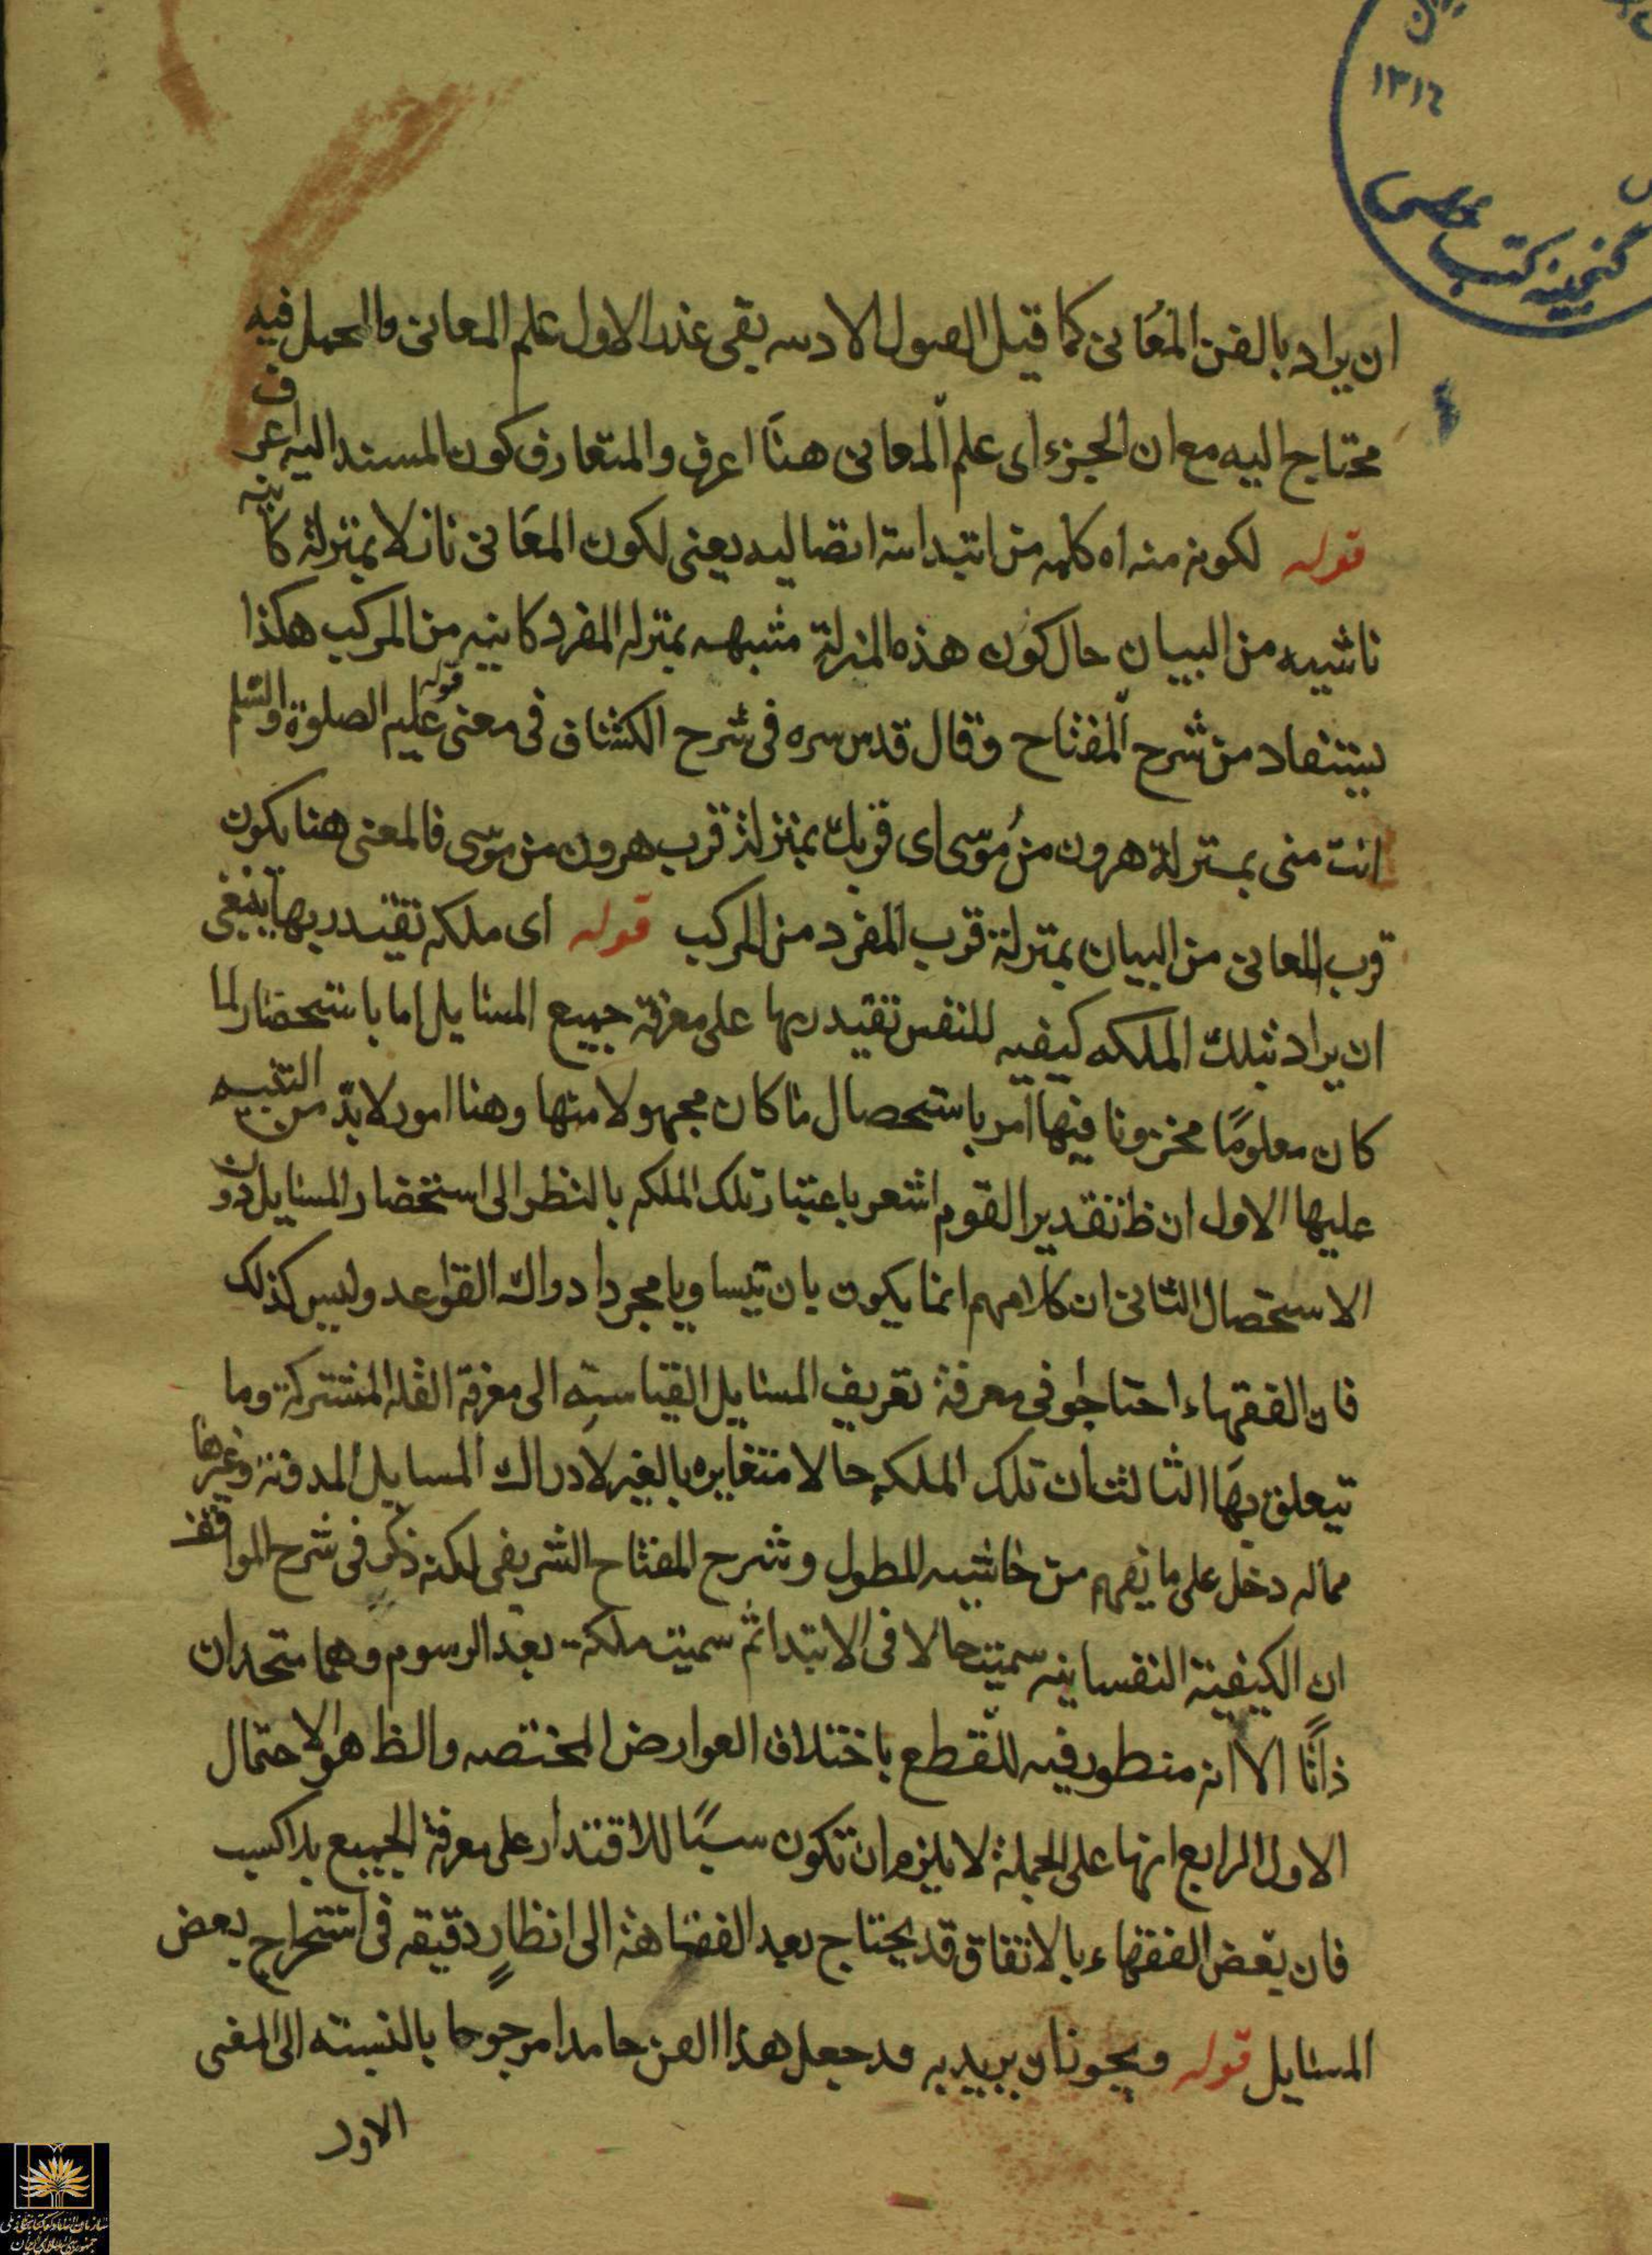 ١٣١٤
گنجینه کتب خطی
ان يراد بالفن المعانى كما قيل الاول علم المعانى والحمل فيه
محتاج اليه مع ان الجزء اى علم المعانى هنا اعرف والمتعارف كون المسند اليه اعرف
قوله لكونه منه اه كلمه من ابتدائيه اتصاليه يعنى لكون المعانى نازلا بمنزلة كاينه
ناشيه من البيان حال كون هذه المنزلة مشبهه بمنزله المفرد كاينه من المركب هكذا
يستفاد من شرح المفتاح وقال قدس سره فى شرح الكشاف فى معنى قوله عليه الصلوة والسلم
انت منى بمنزلة هرون من موسى اى قربك بمنزلة قرب هرون من موسى فالمعنى هنا يكون
قرب المعانى من البيان بمنزلة قرب المفرد من المركب قوله اى ملكه تقتدر بها ينبغى
ان يراد بتلك الملكه كيفيه للنفس تقتدر بها على معرفة جميع المسايل اما باستحضار لما
كان معلومًا مخزونا فيها امر باستحصال ما كان مجهولا منها وهنا امور لابد من التنبيه
عليها الاول ان ظ تقدير القوم اشعر باعتبار تلك الملكه بالنظر الى استحضار المسايل دون
الاستحصال الثانى ان كلامهم انما يكون بان تساويا مجرد ادراك القواعد وليس كذلك
فان الفقهاء احتاجوا فى معرفة تعريف المسايل القياسيه الى معرفة العله المشتركة وما
يتعلق بها الثالث ان تلك الملكه حالا متغايره بالغير لادراك المسايل المدونة وغيرها
مماله دخل على ما يفهم من حاشيه المطول وشرح المفتاح الشريفى لكنه ذكر فى شرح المواقف
ان الكيفية النفسانيه سميت حالا فى الابتدا ثم سميت ملكة بعد الرسوم وهما متحدان
ذاتًا الا انه منطور فيه للقطع باختلاف العوارض المختصه والظ هو الاحتمال
الاول الرابع انها على الجملة لا يلزم ان تكون سببًا للاقتدار على معرفة الجميع بلا كسب
فان بعض الفقهاء بالاتفاق قد يحتاج بعد الفقاهة الى انظار دقيقه فى استخراج بعض
المسايل قوله ويجوز ان يريد به قد جعل هذا الفن جامدا مرجوحا بالنسبته الى المعنى
الاول